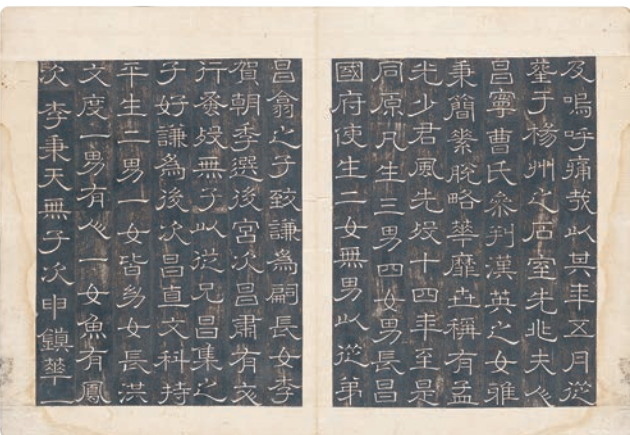 及嗚呼痛哉以其年五月從
塟于楊州之居室先兆夫人
昌寧曹氏叅判漢英之女雅
秉簡素脫略華靡世稱有孟
光少君風先歿十四年至是
同原凡生三男四女男長昌
國府使生二女無男以從弟
昌翕之子致謙為嗣長女李
賀朝季選後宮次昌肅有文
行蚤歿無子以從兄昌集之
子好謙為後次昌直文科持
平生二男一女皆幼女長洪
文度一男有人一女魚有鳳
次李秉天無子次申鎮華一